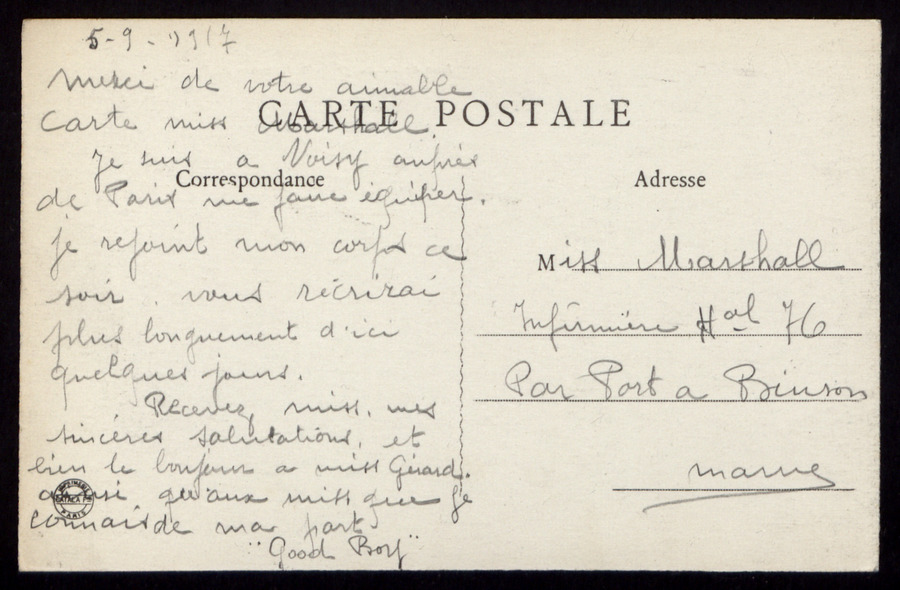 5-9-1917
Merci de votre aimable
Carte miss Marshall.
CARTE POSTALE
Je suis a Noisy auprès
Correspondance
de Paris me faire équiper.
je rejoint mon corps ce
soir. vous récrirai
plus longuement d'ici
quelques jours.
Recevez, miss, mes
sincères salutations, et
bien le bonjour a miss Gérard.
ainsi qu'aux miss que je
connais de ma part
"Good Boy"
Adresse
Miss Marshall
Infirmière Hal 76
Par Port a Binson
Marne
PARIS